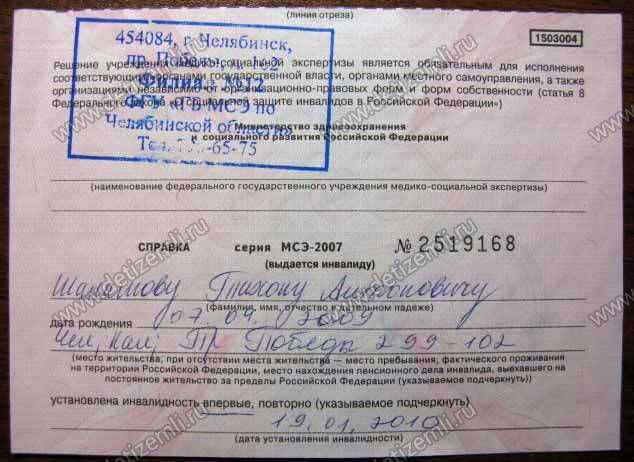 (линия отреза)
1503004
454084, г. Челябинск,
пр. Победы, 102
Филиал №12
ФГУ «ГБ МСЭ по
Челябинской области»
Тел. -65-75
Решение учреждения медико-социальной экспертизы является обязательным для исполнения
соответствующими органами государственной власти, органами местного самоуправления, а также
организациями независимо от организационно-правовых форм и форм собственности (статья 8
Федерального закона «О социальной защите инвалидов в Российской Федерации»)
Министерство здравоохранения
и социального развития Российской Федерации
(наименование федерального государственного учреждения медико-социальной экспертизы)
СПРАВКА серия МСЭ-2007 № 2519168
(выдается инвалиду)
Тихону Антоновичу
(фамилия, имя, отчество в дательном падеже)
дата рождения 07. 04. 2009
Пр Победы 299-102
(место жительства, при отсутствии места жительства — место пребывания, фактического проживания
на территории Российской Федерации, место нахождения пенсионного дела инвалида, выехавшего на
постоянное жительство за пределы Российской Федерации (указываемое подчеркнуть))
установлена инвалидность впервые, повторно (указываемое подчеркнуть)
19.01.2010
(дата установления инвалидности)
www.detizemli.ru